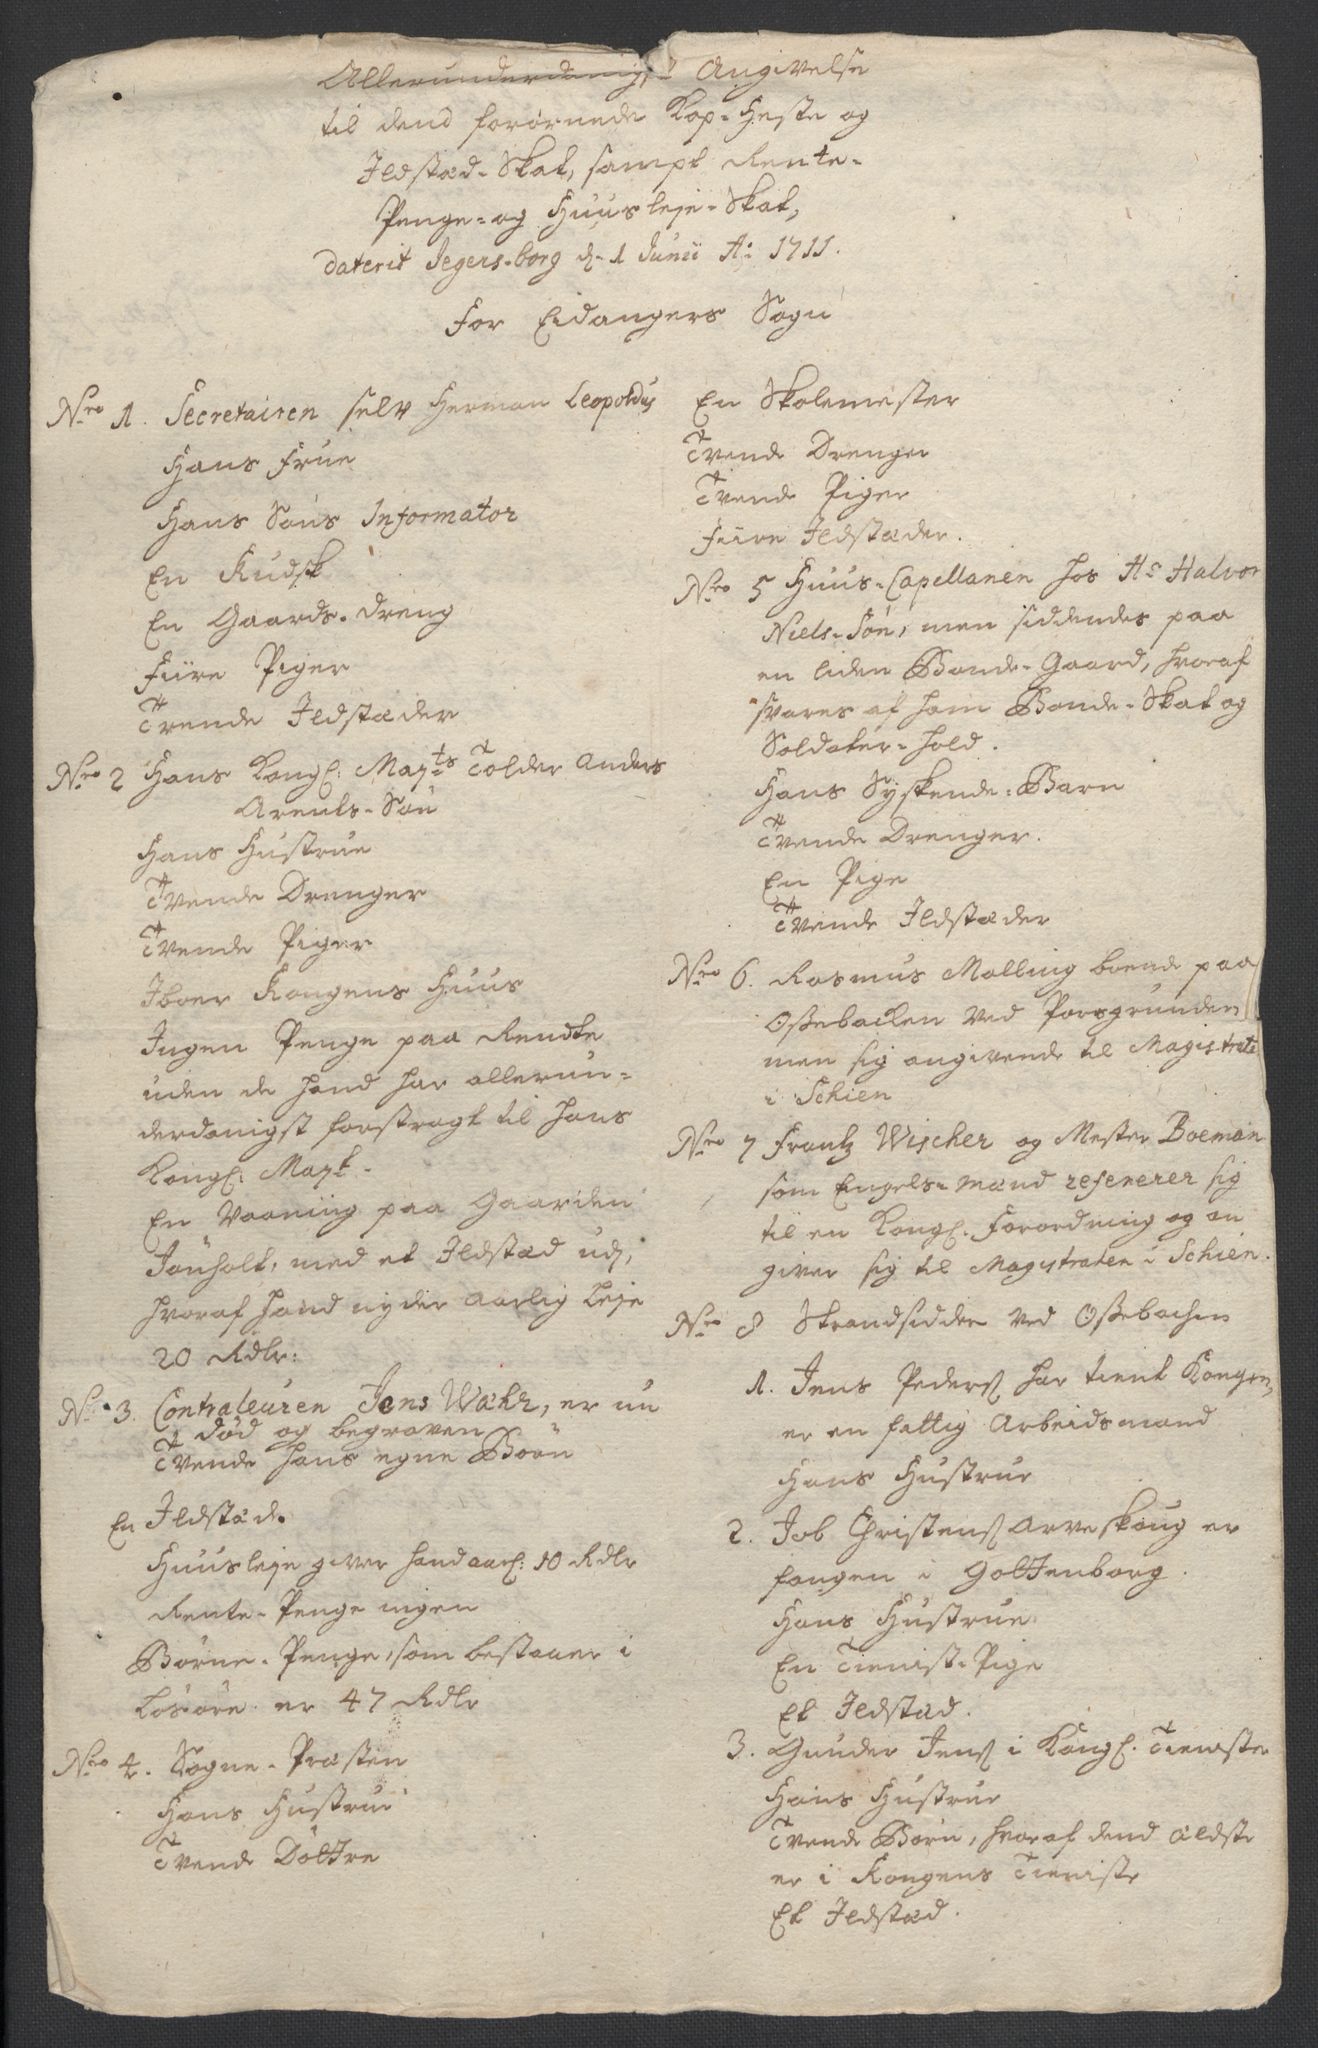 Allerunderdanigst Angivelse
til dend forornede Kop-Heste og
Ildstæd-Skat, sampt Rente-
Penge- og Huusleje-Skat,
daterit Jegers-borg d. 1 Junii Ao 1711.
For Eidangers Sogn
Nro 1. Secretairen selv Herman Leopoldus
Hans Frue
Hans Søns Informator
En Kudsk
En Gaards-dreng
Fiire Piger
Trende Ildstæder
Nro 2 Hans Kongl: Mayts Tolder Anders
Arents-Søn
Hans Hustrue
Tvende Drenger
Tvende Piger
Iboer Kongens Huus
Ingen Penge paa Rendte
uden de hand har allerun-
derdanigst forstragt til Hans
Kongl: Mayt.
En Vaaning paa Gaarden
Jønholt, med et Ildstæd udj,
hvoraf hand nyder aarlig Leje
20 Rdlr:
Nro 3. Contraleuren Jens Wæhr, er nu
død og begraven
Tvende hans egne Børn
En Ildstæd.
Huusleje giver hand aarl: 10 Rdlr
Rente-Penge ingen
Børne-Penge, som bestaaer i
Løsøre er 47 Rdlr
Nro 4. Sogne-Præsten
Hans Hustrue
Tvende Døttre
En Skolemester
Tvende Drenger
Tvende Piger
Fiire Ildstæder.
Nro 5 Huus-Capellanen hos Hr Halvor
Niels-Søn, men siddendes paa
en liden Bonde-Gaard, hvoraf
svares af ham Bonde-Skat og
Soldater-hold.
Hans Syskende-Barn
Tvende Drenger.
En Pige
Tvende Ildstæder
Nro 6. Rasmus Malling boende paa
Ossebachen ved Porsgrunden
men sig angivende til Magistrate
i Schien
Nro 7 Frantz Wischer og Mester Boeman
som Engels-mænd refererer sig
til en Kongl. Forordning og an
giver sig til Magistraten i Schien.
Nro 8 Strandsidder ved Ossebachen
1. Jens Peders: har tient Kongen,
er en fattig Arbeidsmand
Hans Hustrue
2. Job Christens: Arveskoug er
fangen i Gottenborg.
Hans Hustrue
En Tienist-Pige
Et Ildstæd.
3. Gunder Jens: i Kongl. Tieniste
Hans Hustrue
Tvende Børn, hvoraf dend ældste
er i Kongens Tieniste
Et Ildstæd.